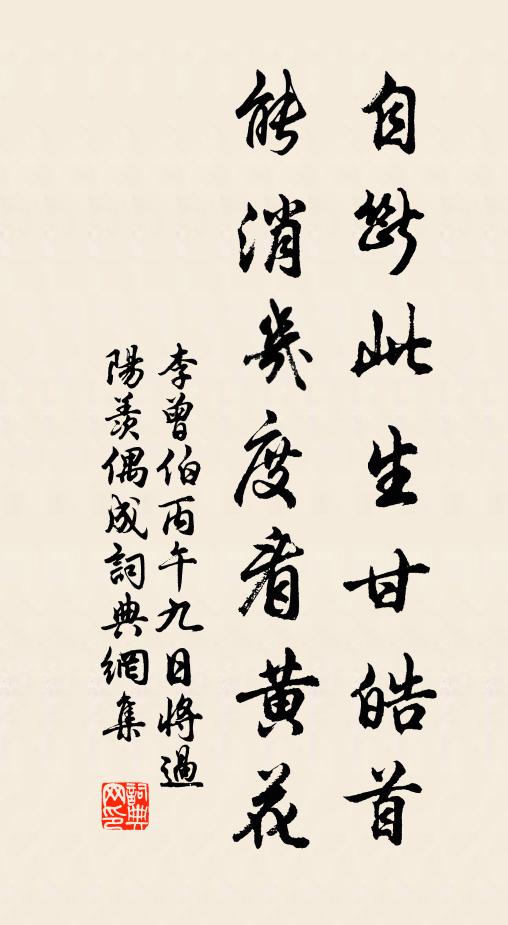 自斷此生甘皓首
能消幾度看黃花
李曾伯丙午九日將過
陽羨偶成詞典網集
詞典網印